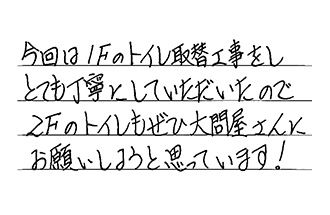 今回は1Fのトイレ取替工事をし
とても丁寧にしていただいたので
2Fのトイレもぜひ大問屋さんに
お願いしようと思っています!